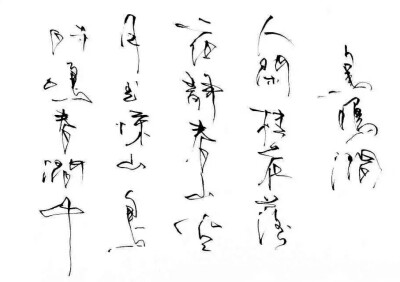 鳥鳴澗
人閑桂花落
夜靜春山空
月出惊山鳥
时鳴春澗中